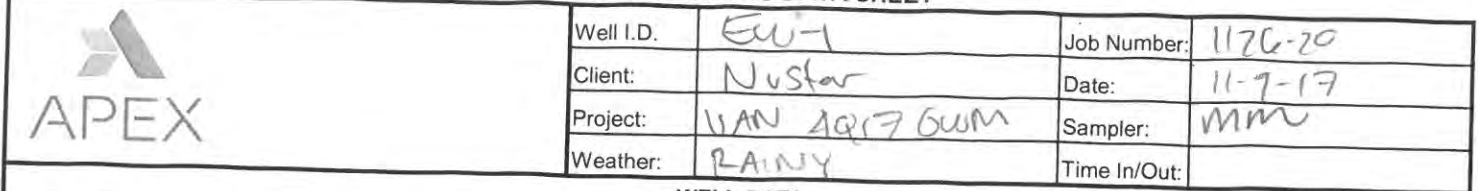 APEX
Well I.D. EW-1 Job Number: 1126-20
Client: NuStar Date:
Project: VAN 4Q17 GWM Sampler: MM
Weather: RAINY Time In/Out: